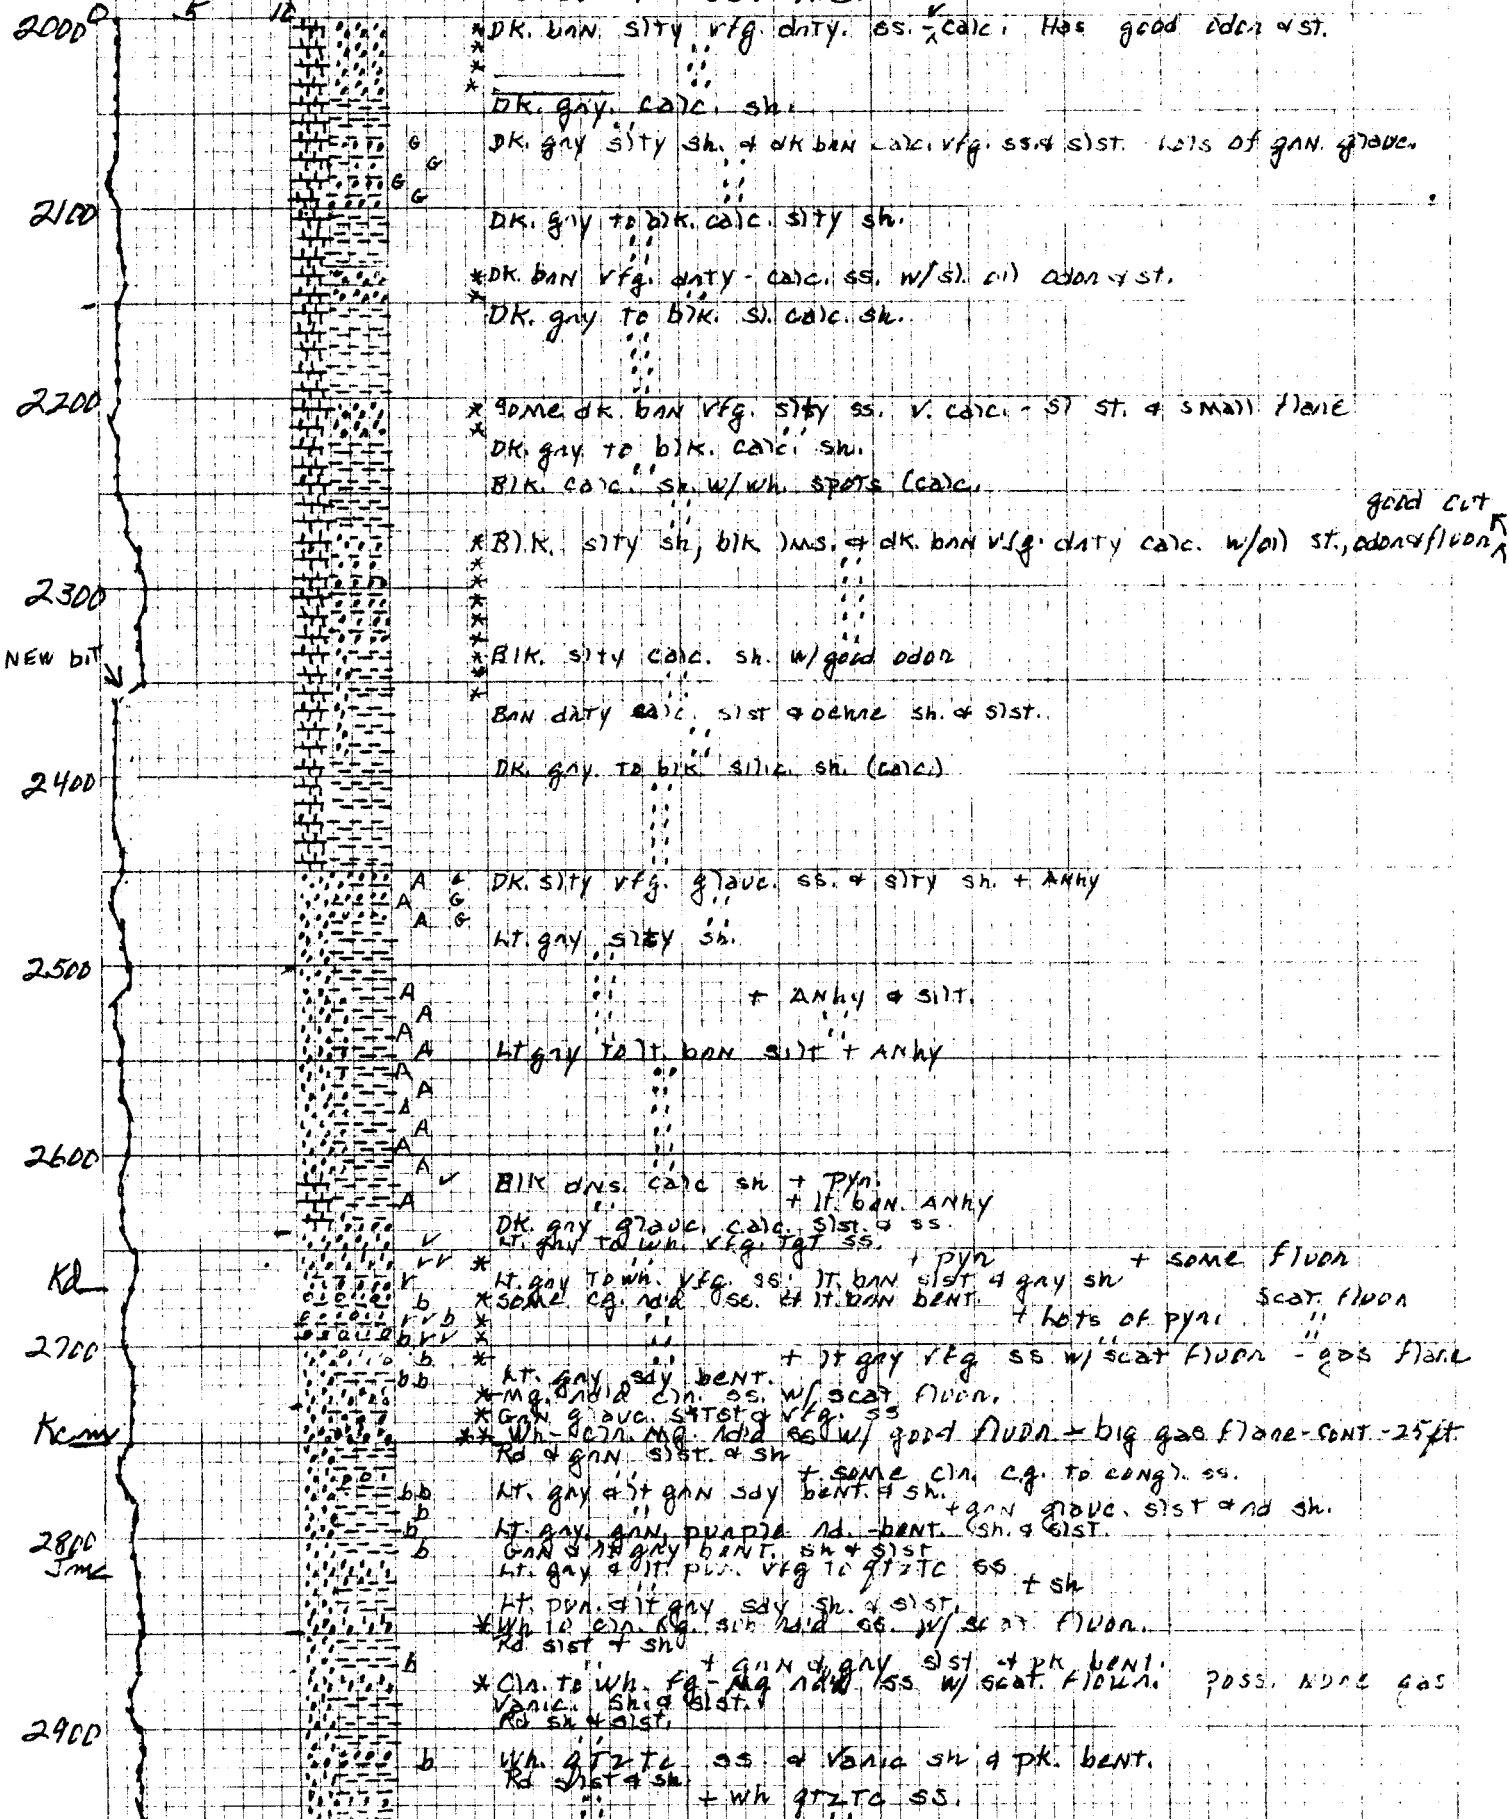 0 5 10
2000 * DK. brn slty vfg. drty. ss. - v calc. Has good odor & st.
*
*
*
DK. gry. calc. sh.
G DK. gry slty sh. & dk brn calc. vfg. ss. & slst. Lots of grn. glauc.
G
G
G
2100
DK. gry to blk. calc. slty sh.
* DK. brn vfg. drty - calc. ss. w/sl. oil odor & st.
*
DK. gry to blk. sl. calc. sh.
2200
* Some dk. brn vfg. slty ss. v. calc. - sl st. & small flare
*
DK. gry to blk. calc. sh.
Blk. calc. sh. w/wh. spots (calc.
good cut
* Blk. slty sh, blk lms. & dk. brn vfg. drty calc. w/oil st., odor & fluor
2300
NEW bit
* Blk. slty calc. sh. w/good odor
Brn drty calc. slst & ochre sh. & slst.
2400
DK. gry. to blk. silic. sh. (calc.)
A G DK. slty vfg. glauc. ss. & slty sh. + ANhy
A G
A G
Lt. gry slty sh.
2500
A + ANhy & silt.
A
A
A Lt gry to lt. brn silt + ANhy
A
A
A
A
A
2600
A
v Blk dns. calc sh + pyr.
A + lt. brn. ANhy
DK. gry glauc. calc. slst. & ss.
v Lt. gry to wh. vfg. tgt ss.
rr * + pyr + some fluor
Kd r Lt. gry to wh. vfg. ss. lt. brn slst & gry sh
b * some cg. rd'd ss. & lt. brn bent. scat. fluor
rrb * + Lots of pyr. "
brr * "
2700
b * + lt gry vfg ss w/scat fluor - gas flare
bb Lt. gry sdy bent.
* Mg. rd'd cln. ss. w/ scat fluor.
* Grn glauc. sltst & vfg. ss
Kcm ** Wh - cln. mg. rd'd ss w/ good fluor - big gas flare - CONT - 25 ft.
Rd & grn slst. & sh
+ some cln. cg. to congl. ss.
bb Lt. gry & lt grn sdy bent. & sh.
b + grn glauc. slst & rd sh.
b Lt gry, grn, purple rd. - bent. (sh. & slst.
2800
Jmc
b Grn & lt gry bent. sh & slst
Lt. gry & lt. pur. vfg to qtztc ss
+ sh
Lt. pur. & lt gry sdy sh. & slst.
* Wh to cln. mg. sub rd'd ss. w/ scat fluor.
Rd slst & sh
b + grn & gry slst & pk bent.
* Cln. to wh. fg - mg rd'd ss w/ scat. fluor. poss. more gas
Varic. sh. & slst.
2900 Rd sh & slst.
b Wh. qtztc ss & varic sh & pk. bent.
Rd slst & sh
+ wh qtztc ss.